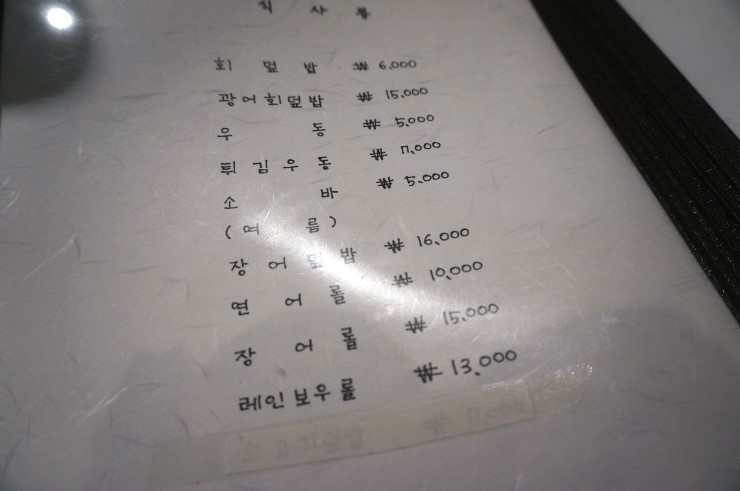 식 사 부
회 덮 밥 ₩ 6,000
광어회덮밥 ₩ 15,000
우 동 ₩ 5,000
튀김우동 ₩ 7,000
소 바 ₩ 5,000
(여 름)
장어덮밥 ₩ 16,000
연 어 롤 ₩ 10,000
장 어 롤 ₩ 15,000
레인보우롤 ₩ 13,000